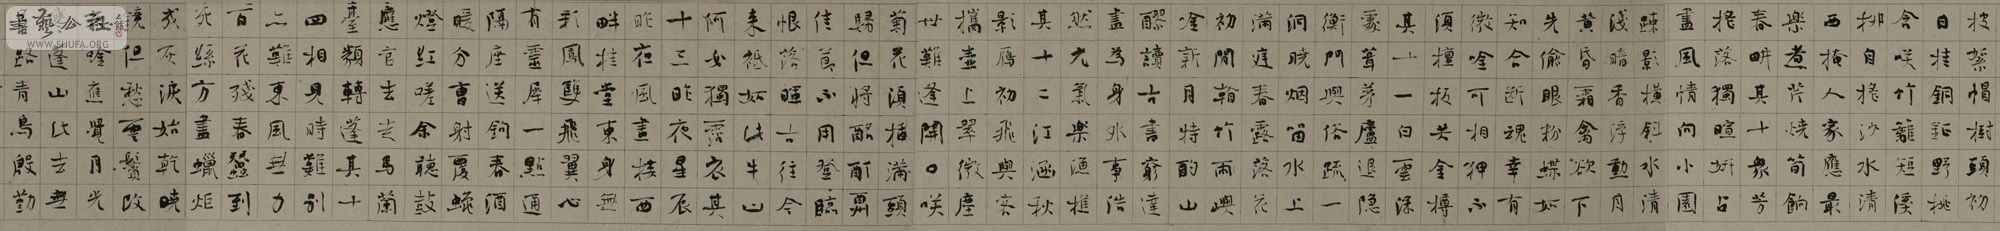 披絮帽樹頭初
日挂銅鉦野桃
含咲竹籬短溪
柳自搖沙水清
西掩人家應最
樂煮芹燒筍餉
春畊其十衆芳
搖落獨暄妍占
盡風情向小園
疎影橫斜水清
淺暗香浮動月
黃昏霜禽欲下
先偷眼粉蝶如
知合斷魂幸有
微唫可相狎不
須檀板共金樽
其十一白雲深
處葺茅廬退隱
衡門與俗疏一
洞曉烟笛水上
滿庭春露落花
初閒竹雨嶼
唫新月特酌山
醪讀古書窮達
盡為身外事浩
然元氣樂漁樵
其十二江涵秋
影雁初飛與客
攜壺上翠微塵
世難逢開口咲
菊花須插滿頭
歸但將酩酊酬
佳節不用登臨
恨路暉古往今
來祇如此牛山
何必獨霑衣其
十三昨夜星辰
昨夜風畫樓西
畔桂堂東身無
彩鳳雙飛翼心
有靈犀一點通
隔座送鉤春酒
暖分曹射覆蠟
燈紅嗟余聽鼓
應官去走馬蘭
臺類轉蓬其十
四相見時難別
二難東風無力
百花殘春蠶到
死絲方盡蠟炬
成灰淚始乾曉
鏡但愁雲鬢改
唫應覺月光
蓬山此去無
路青鳥殷勤
WWW.SHUFA.ORG